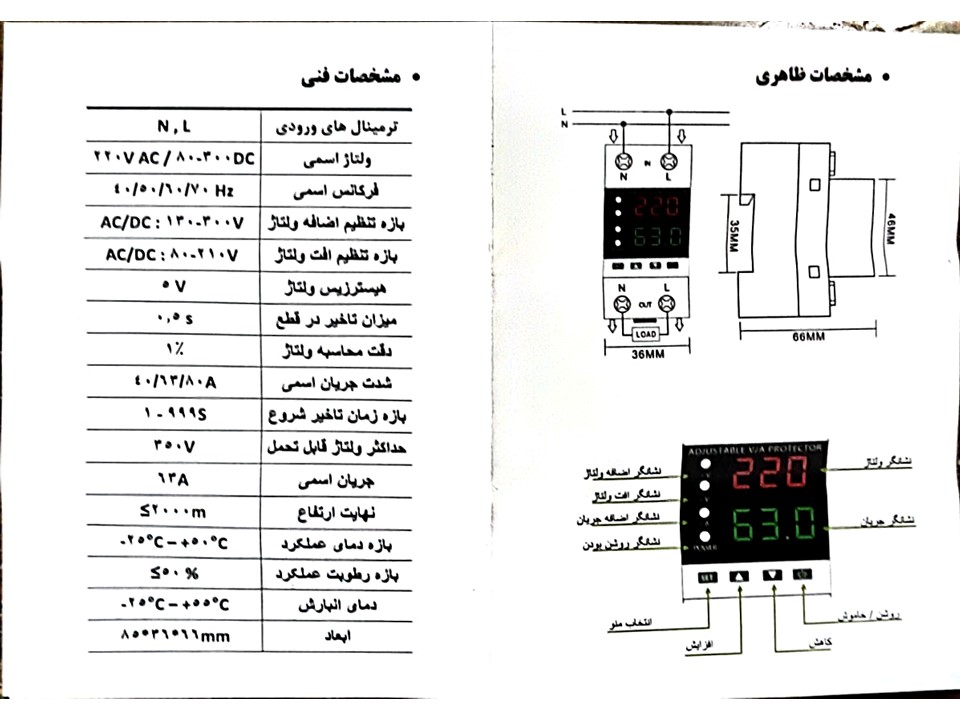 • مشخصات ظاهری
L
N
IN
N L
220
630
N L
OUT
LOAD
36MM
35MM
46MM
66MM
ADJUSTABLE V/A PROTECTOR
220
63.0
POWER
SET
نشانگر اضافه ولتاژ
نشانگر افت ولتاژ
نشانگر اضافه جریان
نشانگر روشن بودن
نشانگر ولتاژ
نشانگر جریان
انتخاب منو
افزایش
کاهش
روشن / خاموش
• مشخصات فنی
ترمینال های ورودی N , L
ولتاژ اسمی ۲۲۰V AC / ۸۰-۳۰۰DC
فرکانس اسمی ٤٠/٥٠/٦٠/٧٠ Hz
بازه تنظیم اضافه ولتاژ AC/DC : ۱۳۰-۳۰۰V
بازه تنظیم افت ولتاژ AC/DC : ۸۰-۲۱۰V
هیسترزیس ولتاژ ٥ V
میزان تاخیر در قطع ٠,٥ s
دقت محاسبه ولتاژ ۱٪
شدت جریان اسمی ٤٠/٦٣/٨٠A
بازه زمان تاخیر شروع ۱ - ۹۹۹S
حداکثر ولتاژ قابل تحمل ٣٥٠V
جریان اسمی ٦٣A
نهایت ارتفاع ≤۲۰۰۰m
بازه دمای عملکرد -٢٥°C – +٥٠°C
بازه رطوبت عملکرد ≤٥٠ %
دمای انبارش -٢٥°C – +٥٥°C
ابعاد ٨٥٥٣٦٥٦٦mm